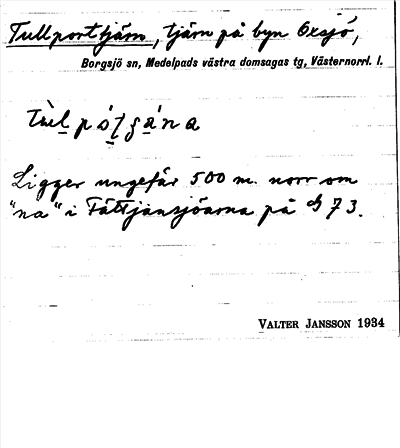 Tullporttjärn, tjärn på byn Oxsjö,
Borgsjö sn, Medelpads västra domsagas tg, Västernorrl. l.
Ligger ungefär 500 m. norr om
"na" i Tättjärnsjöarna på 73.
VALTER JANSSON 1934